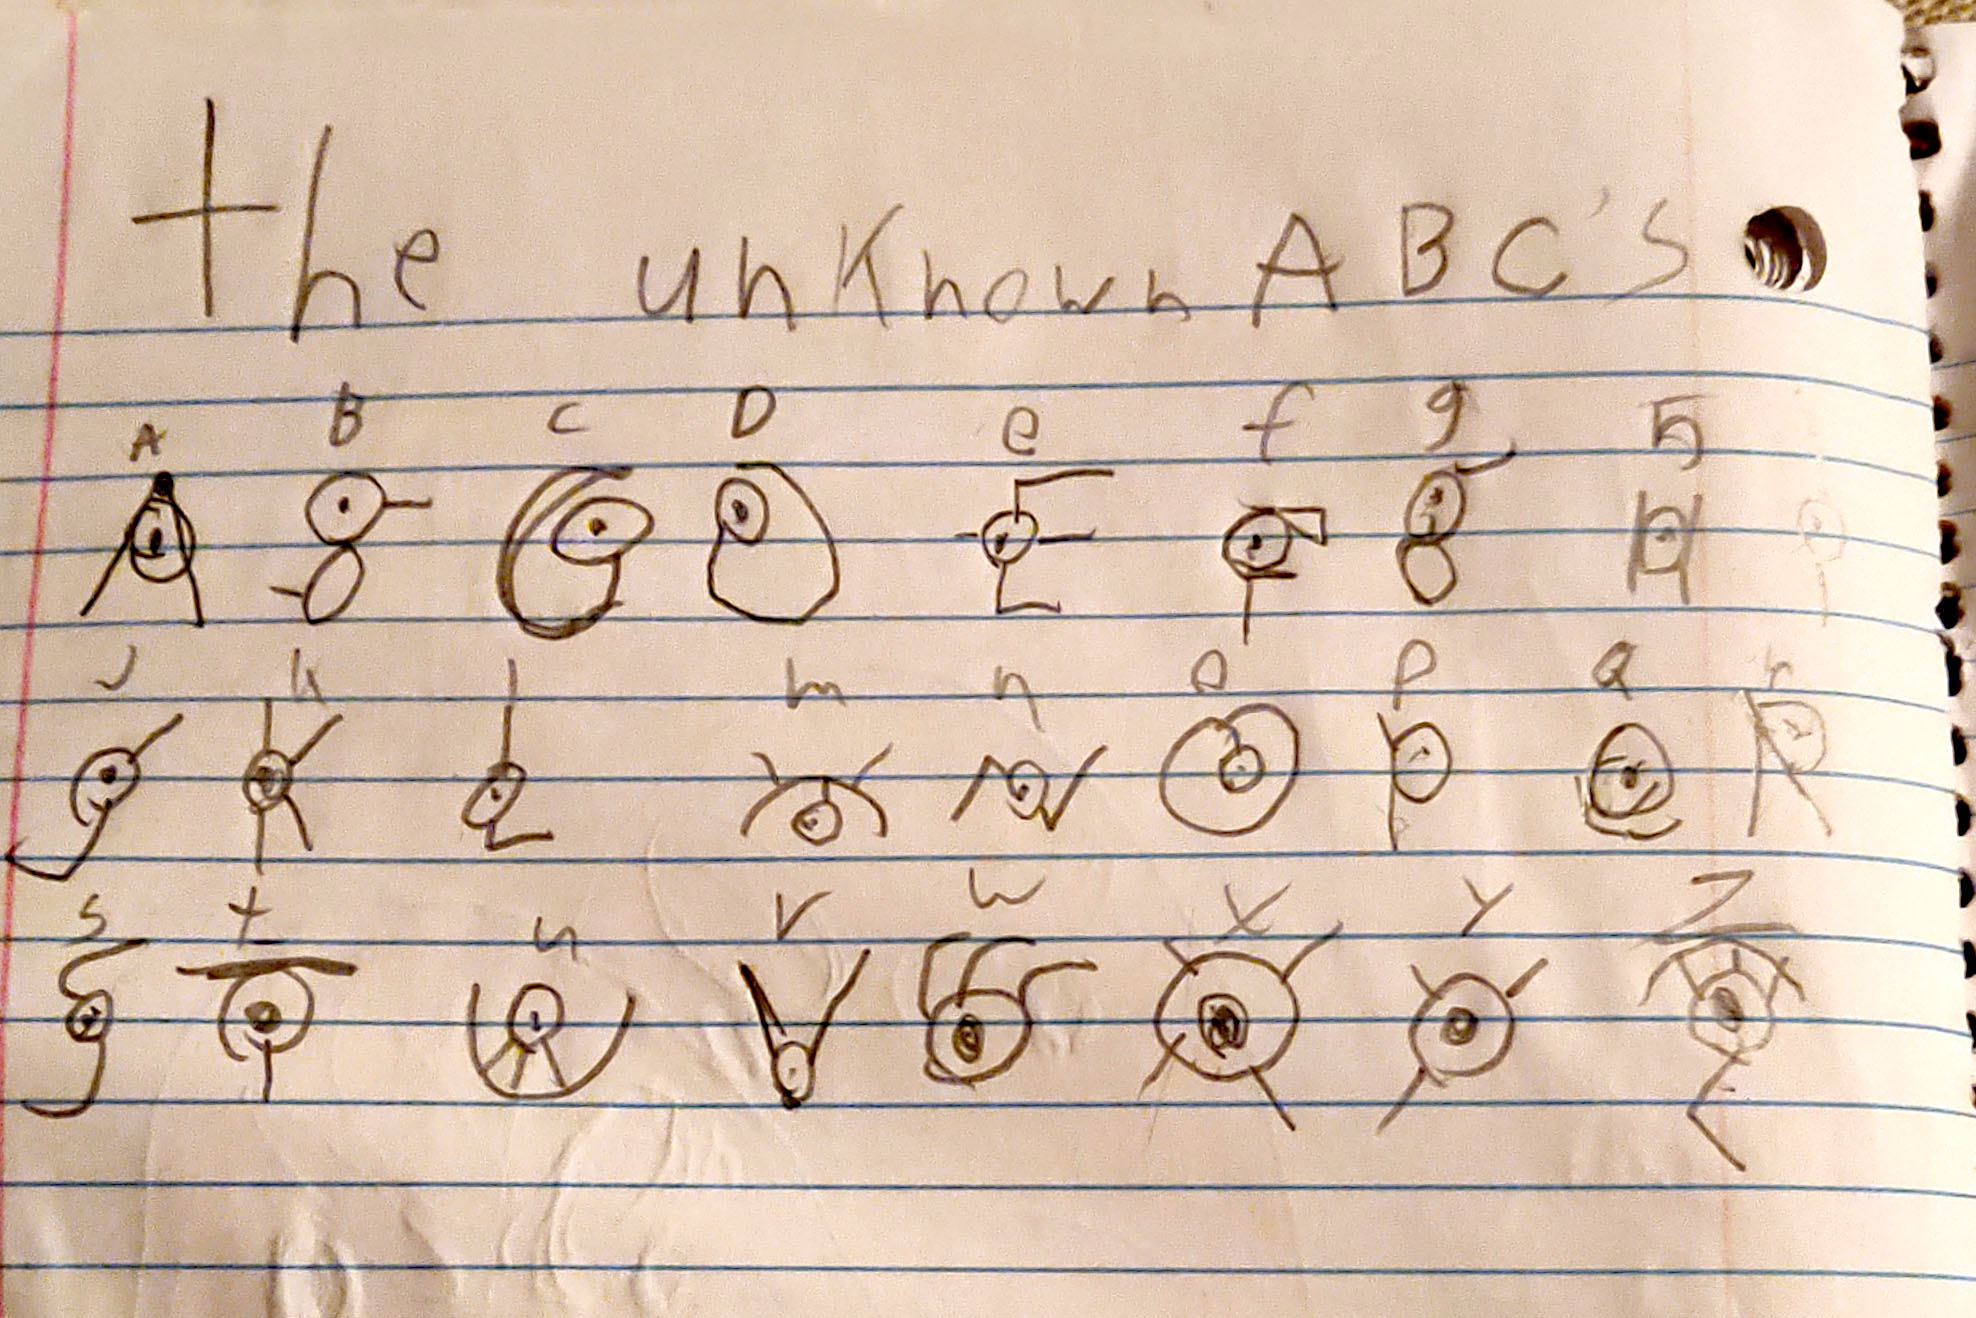 the unKnown ABC's
A B C D e f g h
J k l m n o p Q r
s t u v w x y z